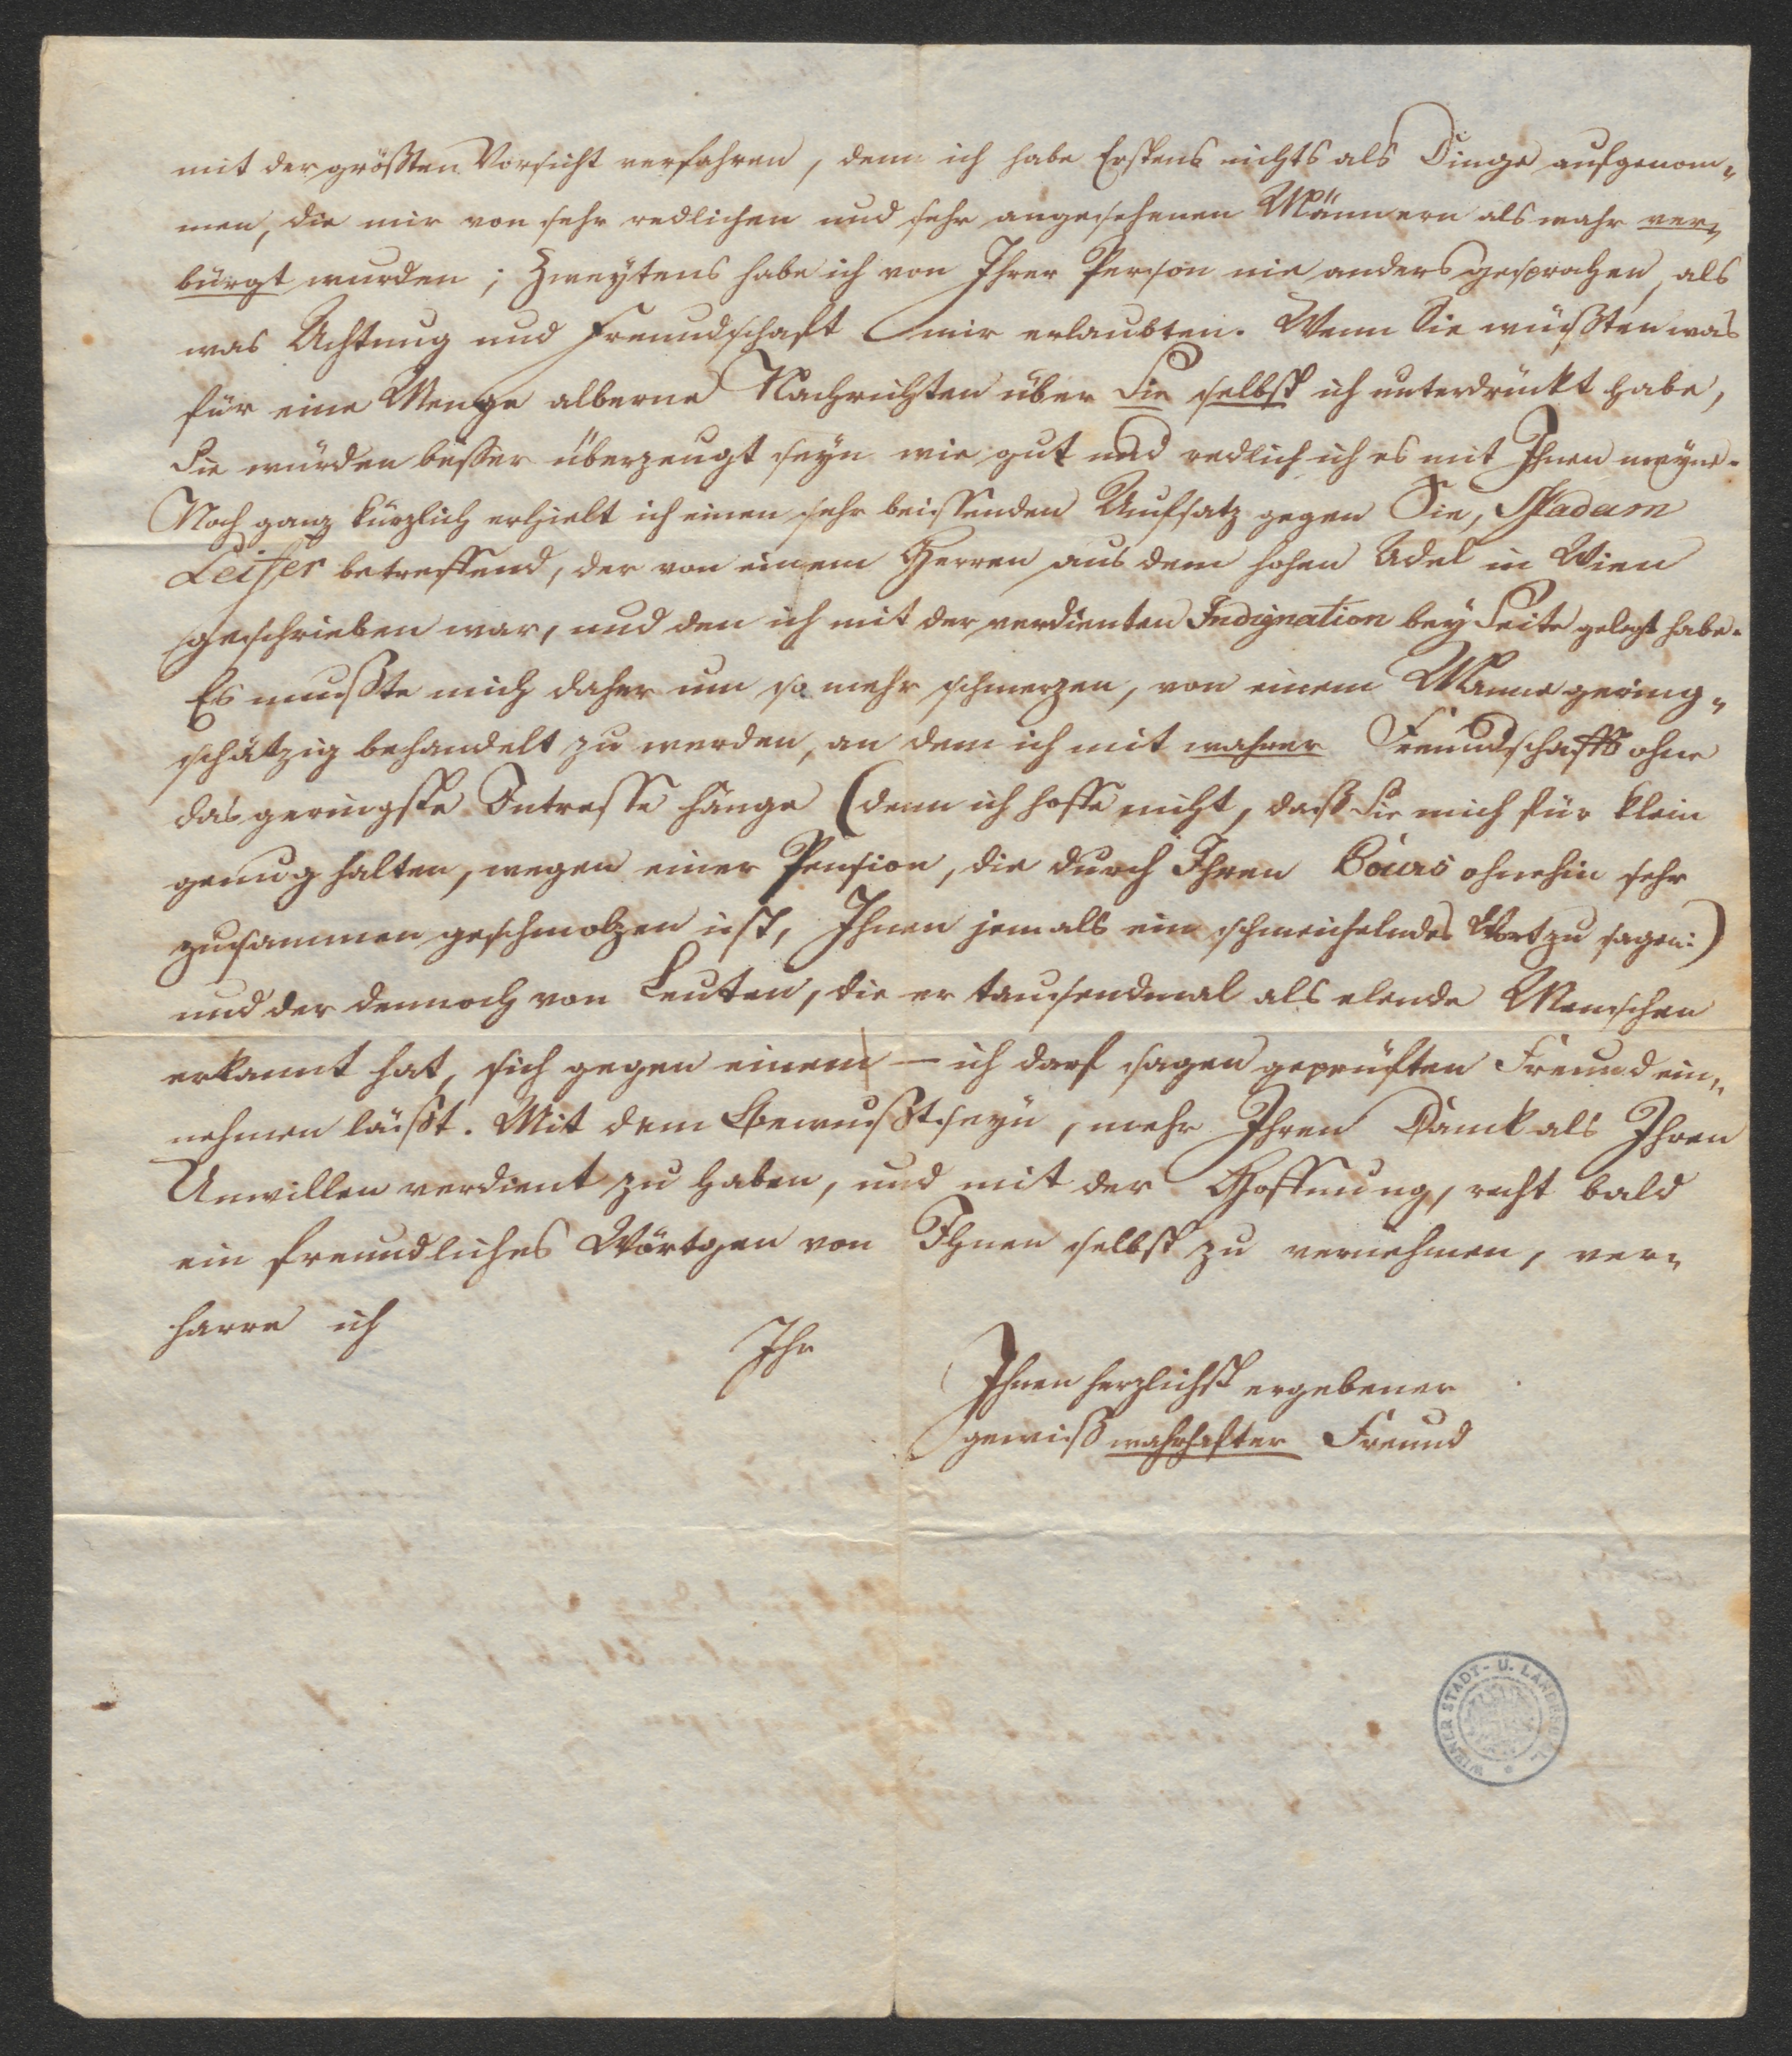 mit der größten Vorsicht verfahren, denn ich habe Erstens nichts als Dinge aufgenom-
men, die mir von sehr redlichen und sehr angesehenen Männern als wahr ver-
bürgt wurden; Zweytens habe ich von Ihrer Person nie anders gesprochen, als
was Achtung und Freundschaft mir erlaubten. Wenn Sie wüßten was
für eine Menge alberne Nachrichten über Sie selbst ich unterdrückt habe,
Sie würden besser überzeugt seyn wie gut und redlich ich es mit Ihnen meyne.
Noch ganz kürzlich erhielt ich einen sehr beissenden Aufsatz gegen Sie, Madam
Leisser betreffend, der von einem Herren aus dem hohen Adel in Wien
geschrieben war, und den ich mit der verdienten Indignation bey Seite gelegt habe.
Es mußte mich daher um so mehr schmerzen, von einem Manne gering-
schätzig behandelt zu werden, an dem ich mit wahrer Freundschafft ohne
das geringste Intresse hänge (denn ich hoffe nicht, daß Sie mich für klein
genug halten, wegen einer Pension, die durch Ihren Cours ohnehin sehr
zusammen geschmolzen ist, Ihnen jemals ein schmeichelndes Wort zu sagen:)
und der dennoch von Leuten, die er tausendmal als elende Menschen
erkannt hat, sich gegen einen — ich darf sagen geprüften Freund ein-
nehmen läßt. Mit dem Bewußtseyn, mehr Ihren Danck als Ihren
Unwillen verdient zu haben, und mit der Hoffnung, recht bald
ein freundliches Wörtgen von Ihnen selbst zu vernehmen, ver-
harre ich
Ihr
Ihnen herzlichst ergebener
gewiß wahrhafter Freund
WIENER STADT- U. LANDESBIBL.